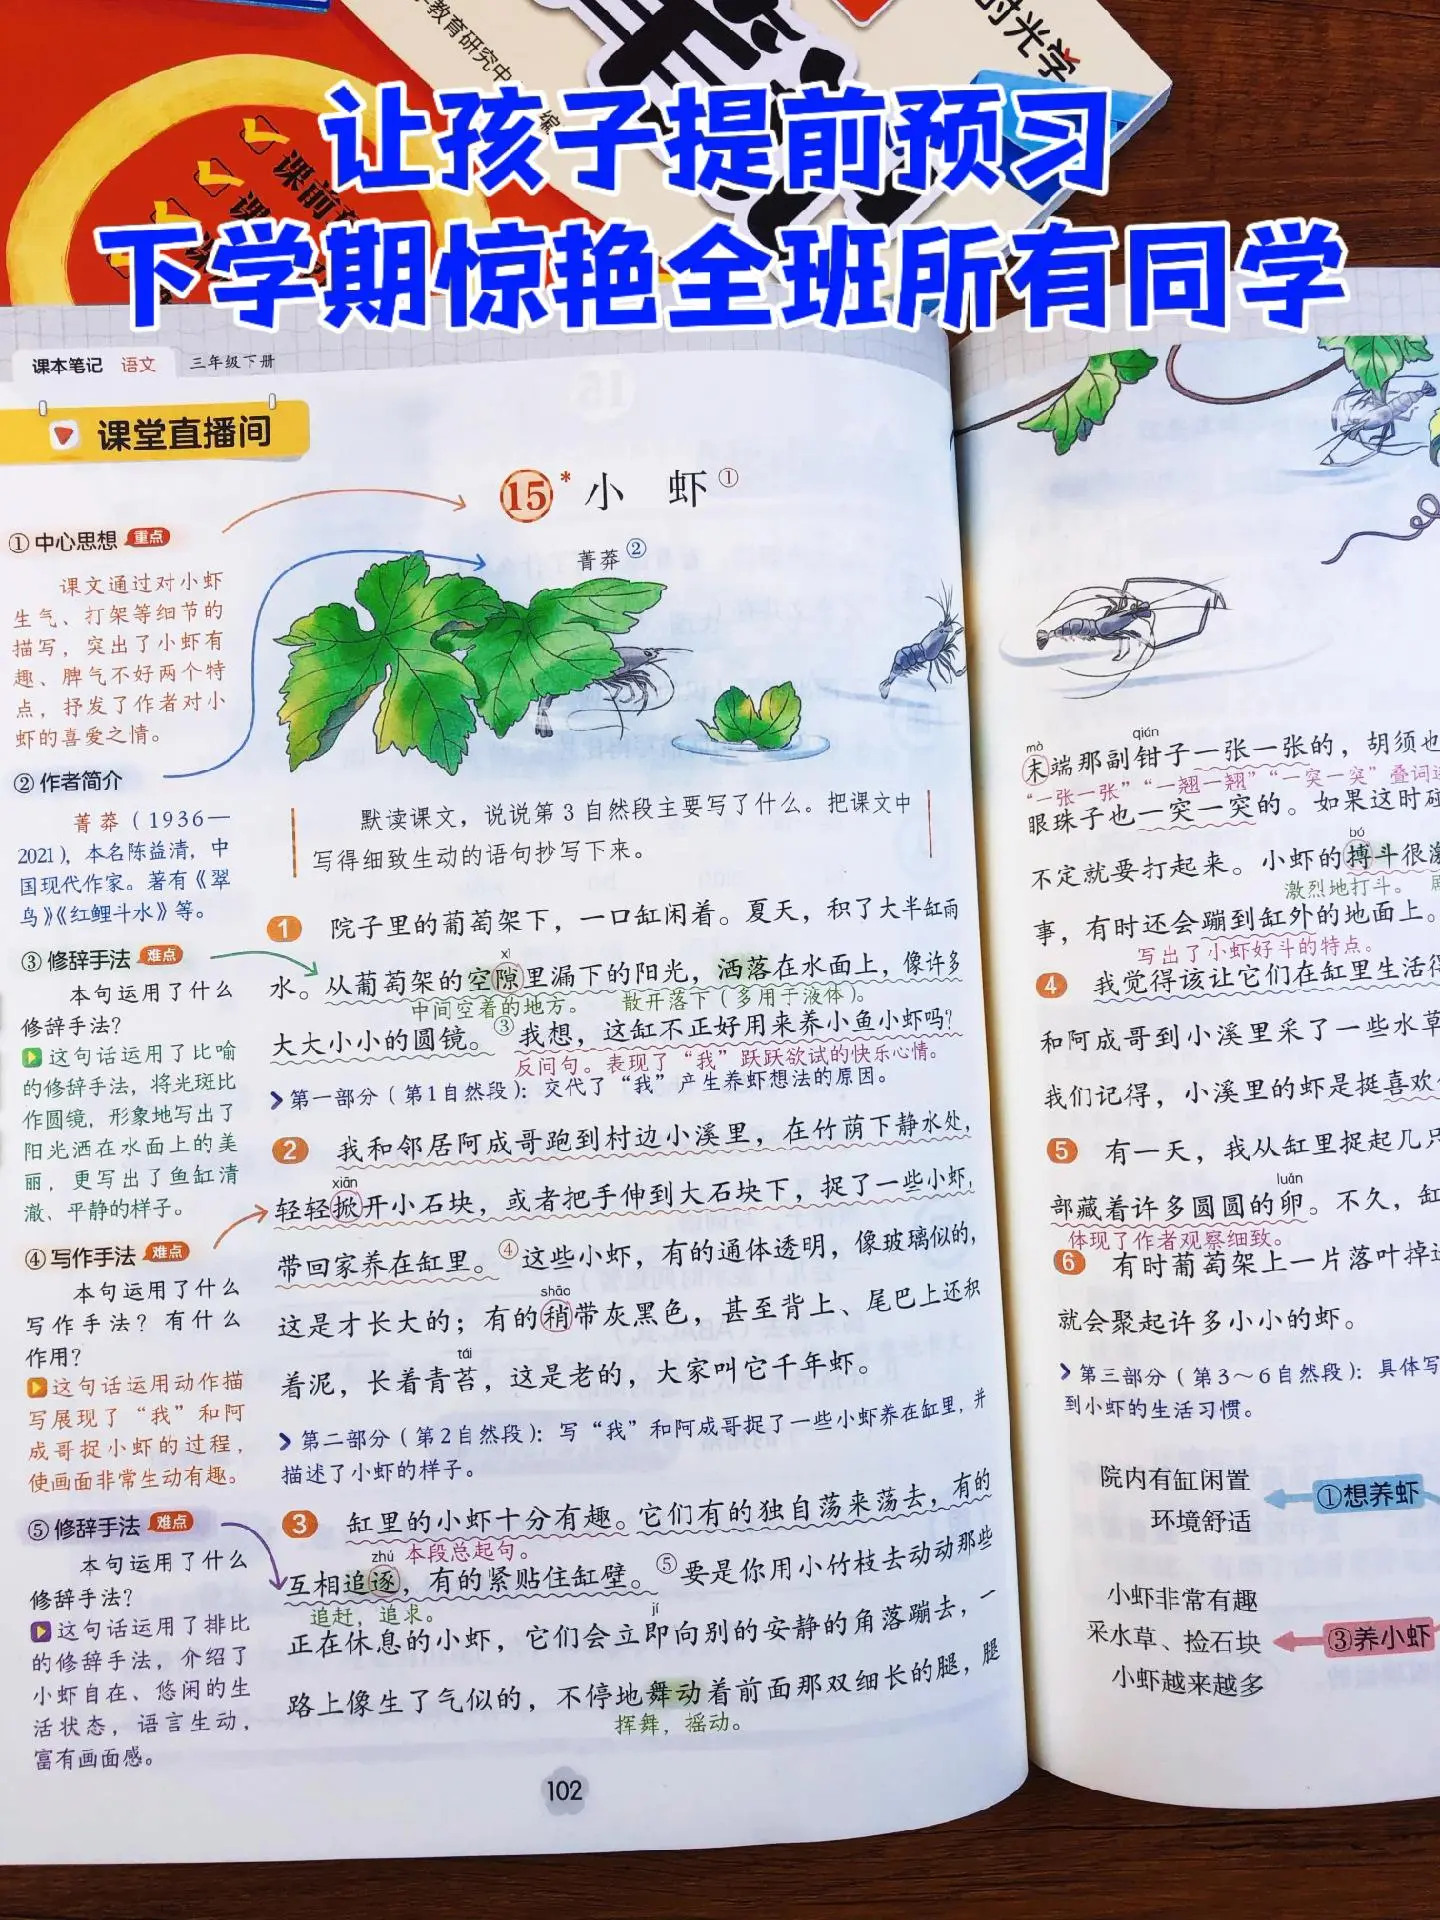 教育研究中
编
时光学
课前
让孩子提前预习
下学期惊艳全班所有同学
课本笔记 语文 三年级下册
课堂直播间
15* 小 虾①
菁莽②
①中心思想 重点
课文通过对小虾
生气、打架等细节的
描写，突出了小虾有
趣、脾气不好两个特
点，抒发了作者对小
虾的喜爱之情。
②作者简介
菁莽（1936—
2021），本名陈益清，中
国现代作家。著有《翠
鸟》《红鲤斗水》等。
③修辞手法 难点
本句运用了什么
修辞手法？
这句话运用了比喻
的修辞手法，将光斑比
作圆镜，形象地写出了
阳光洒在水面上的美
丽，更写出了鱼缸清
澈、平静的样子。
④写作手法 难点
本句运用了什么
写作手法？有什么
作用？
这句话运用动作描
写展现了“我”和阿
成哥捉小虾的过程，
使画面非常生动有趣。
⑤修辞手法 难点
本句运用了什么
修辞手法？
这句话运用了排比
的修辞手法，介绍了
小虾自在、悠闲的生
活状态，语言生动，
富有画面感。
默读课文，说说第3自然段主要写了什么。把课文中
写得细致生动的语句抄写下来。
1 院子里的葡萄架下，一口缸闲着。夏天，积了大半缸雨
xì
水。从葡萄架的空隙里漏下的阳光，洒落在水面上，像许多
中间空着的地方。 散开落下（多用于液体）。
大大小小的圆镜。③我想，这缸不正好用来养小鱼小虾吗？
反问句。表现了“我”跃跃欲试的快乐心情。
第一部分（第1自然段）：交代了“我”产生养虾想法的原因。
2 我和邻居阿成哥跑到村边小溪里，在竹荫下静水处，
xiān
轻轻掀开小石块，或者把手伸到大石块下，捉了一些小虾，
带回家养在缸里。④这些小虾，有的通体透明，像玻璃似的，
shāo
这是才长大的；有的稍带灰黑色，甚至背上、尾巴上还积
tái
着泥，长着青苔，这是老的，大家叫它千年虾。
第二部分（第2自然段）：写“我”和阿成哥捉了一些小虾养在缸里，并
描述了小虾的样子。
3 缸里的小虾十分有趣。它们有的独自荡来荡去，有的
zhú 本段总起句。
互相追逐，有的紧贴住缸壁。⑤要是你用小竹枝去动动那些
追赶，追求。 jí
正在休息的小虾，它们会立即向别的安静的角落蹦去，一
路上像生了气似的，不停地舞动着前面那双细长的腿，腿
挥舞，摇动。
102
mò qián
末端那副钳子一张一张的，胡须也
“一张一张”“一翘一翘”“一突一突”叠词
眼珠子也一突一突的。如果这时碰
bó
不定就要打起来。小虾的搏斗很激
激烈地打斗。
事，有时还会蹦到缸外的地面上。
写出了小虾好斗的特点。
4 我觉得该让它们在缸里生活得
和阿成哥到小溪里采了一些水草
我们记得，小溪里的虾是挺喜欢
5 有一天，我从缸里捉起几只
luǎn
部藏着许多圆圆的卵。不久，缸
体现了作者观察细致。
6 有时葡萄架上一片落叶掉
就会聚起许多小小的虾。
第三部分（第3～6自然段）：具体写
到小虾的生活习惯。
院内有缸闲置
环境舒适
①想养虾
小虾非常有趣
采水草、捡石块
小虾越来越多
③养小虾